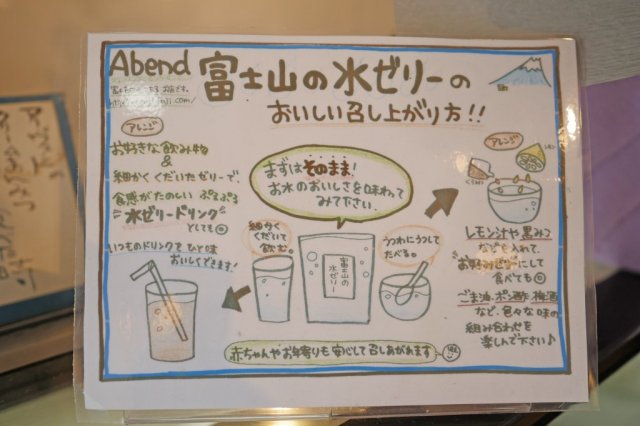 Abend 富士山の水ゼリーの
おいしい召し上がり方!!
アレンジ
お好きな飲み物
&
細かくくだいたゼリーで、
食感がたのしい ぷるぷる
"水ゼリードリンク"
としても◎
いつものドリンクをひと味
おいしくできます!
まずはそのまま!
お水のおいしさを味わって
みて下さい。
細かく
くだいて
飲む。
富士山の
水ゼリー
うつわにうつして
たべる。
アレンジ
レモン汁や黒みつ
などを入れて、
お好みビーにして
食べても◎
ごま油、ポン酢、梅酒
など、色々な味の
組み合わせを
楽しんで下さい♪
赤ちゃんやお年寄りも安心して召しあがれます